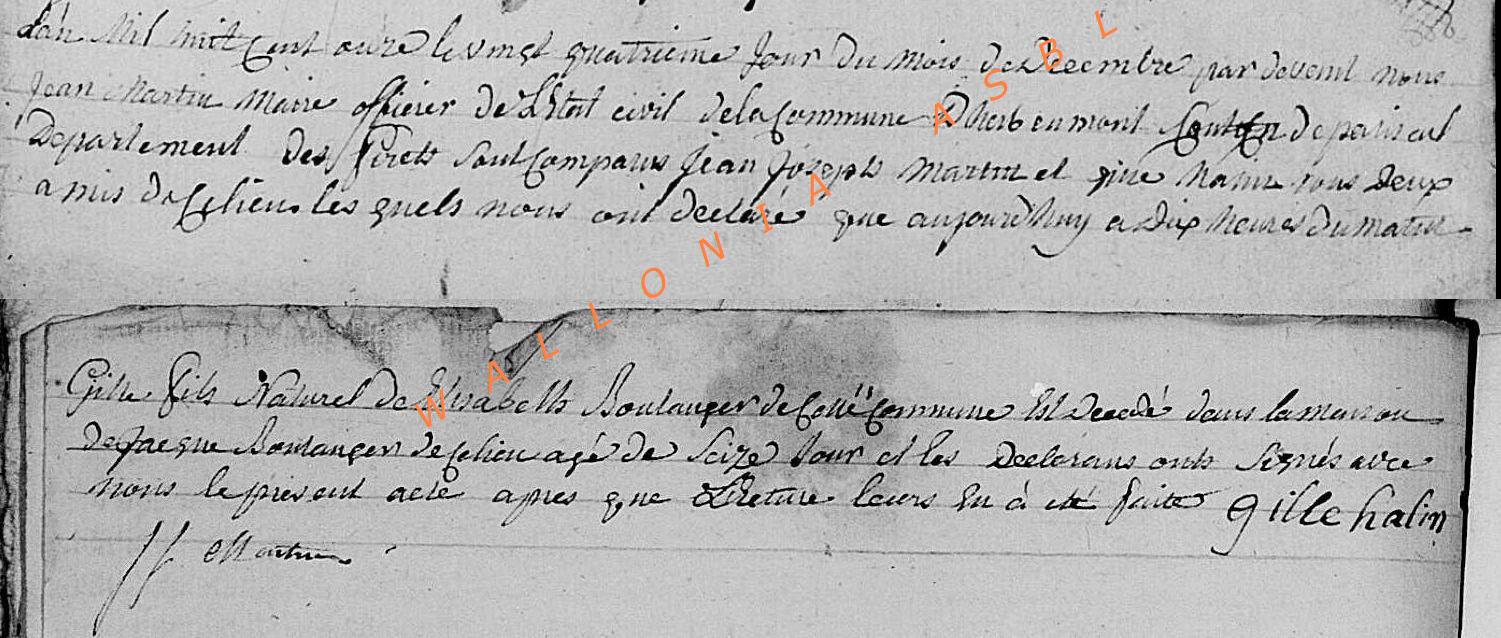 Lan Mil huit Cent onze le vingt quatrieme Jour du mois de Decembre par devant nous
Jean Martin Maire officier de L'Etat civil dela Commune D'herbeumont Canton de paliseul
Departement des forets sont Comparus Jean Joseph Martin et gille halin tous Deux
amis de Celieu les quels nous ont declaré que aujourdhuy a Dix heures Du matin
Gille fils Naturel De Elisabeth Boulanger de Commune Est Decedé dans la maison
De Jacque Boulanger de Celieu agé de Seize Jour et les Declarans onts signés avec
nous le present acte apres que Lecture leurs En à eté faite gille halin
JJ Martin
WALLONIA ASBL